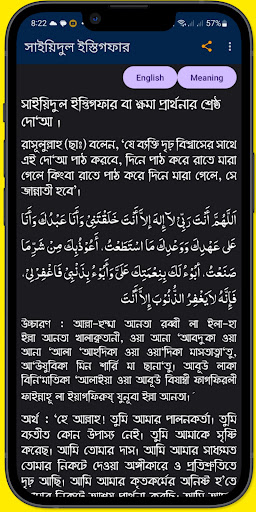 8:22
57%
সাইয়িদুল ইস্তিগফার
English
Meaning
সাইয়িদুল ইস্তিগফার বা ক্ষমা প্রার্থনার শ্রেষ্ঠ
দো‘আ ।
রাসূলুল্লাহ (ছাঃ) বলেন, ‘যে ব্যক্তি দৃঢ় বিশ্বাসের সাথে
এই দো‘আ পাঠ করবে, দিনে পাঠ করে রাতে মারা
গেলে কিংবা রাতে পাঠ করে দিনে মারা গেলে, সে
জান্নাতী হবে’।
اَللَّهُمَّ أَنْتَ رَبِّىْ لآ إِلهَ إلاَّ أَنْتَ خَلَقْتَنِىْ وَأَنَا عَبْدُكَ وَأَنَا
عَلى عَهْدِكَ وَوَعْدِكَ مَا اسْتَطَعْتُ، أَعُوْذُبِكَ مِنْ شَرِّمَا
صَنَعْتُ، أبُوْءُ لَكَ بِنِعْمَتِكَ عَلَىَّ وَأَبُوْءُ بِذَنْبِىْ فَاغْفِرْلِىْ،
فَإِنَّهُ لاَيَغْفِرُ الذُّنُوْبَ إِلاَّ أَنْتَ
উচ্চারণ : আল্লা-হুম্মা আনতা রব্বী লা ইলা-হা
ইল্লা আনতা খালাক্বতানী, ওয়া আনা ‘আবদুকা ওয়া
আনা ‘আলা ‘আহদিকা ওয়া ওয়া‘দিকা মাসতাত্বা‘তু,
আ‘ঊযুবিকা মিন শার্রি মা ছানা‘তু। আবূউ লাকা
বিনি‘মাতিকা ‘আলাইয়া ওয়া আবূউ বিযাম্বী ফাগফিরলী
ফাইন্নাহূ লা ইয়াগফিরুয্ যুনূবা ইল্লা আনতা।
অর্থ : ‘হে আল্লাহ! তুমি আমার পালনকর্তা। তুমি
ব্যতীত কোন উপাস্য নেই। তুমি আমাকে সৃষ্টি
করেছ। আমি তোমার দাস। আমি আমার সাধ্যমত
তোমার নিকটে দেওয়া অঙ্গীকারে ও প্রতিশ্রুতিতে
দৃঢ় আছি। আমি আমার কৃতকর্মের অনিষ্ট হ’তে